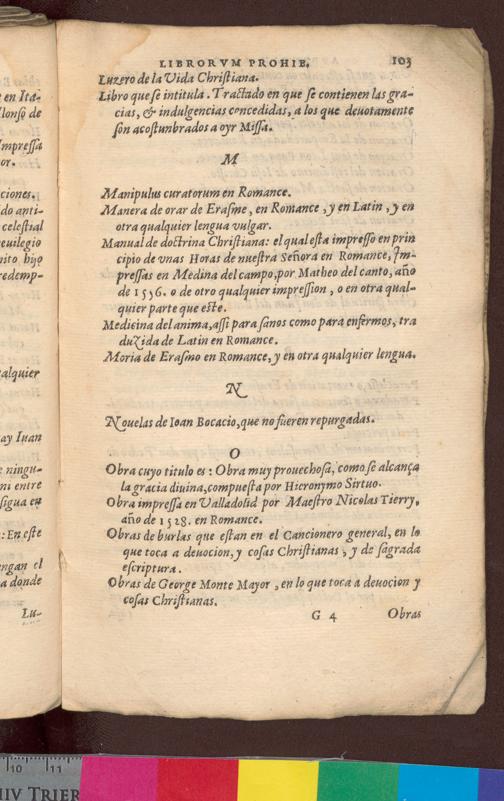 en Ita-
lonso de
mpressa
or.
ciones.
do anti-
celestial
euilegio
nito hijo
redemp-
alquier
ay Iuan
e ningu-
ni entre
sigua en
: En este
engan el
a donde
Lu-
LIBRORVM PROHIB. 103
Luzero de la Vida Christiana.
Libro que se intitula. Tractado en que se contienen las gra-
cias, & indulgencias concedidas, a los que deuotamente
son acostunbrados a oyr Missa.
M
Manipulus curatorum en Romance.
Manera de orar de Erasme, en Romance, y en Latin, y en
otra qualquier lengua vulgar.
Manual de doctrina Christiana: el qual esta impresso en prin
cipio de vnas Horas de nuestra Señora en Romance, Im-
pressas en Medina del campo, por Matheo del canto, año
de 1556. o de otro qualquier impression, o en otra qual-
quier parte que este.
Medicina del anima, assi para sanos como para enfermos, tra
duzida de Latin en Romance.
Moria de Erasmo en Romance, y en otra qualquier lengua.
N
Nouelas de Ioan Bocacio, que no fueren repurgadas.
O
Obra cuyo titulo es: Obra muy prouechosa, como se alcança
la gracia diuina, compuesta por Hieronymo Sirtuo.
Obra impressa en Valladolid por Maestro Nicolas Tierry,
año de 1528. en Romance.
Obras de burlas que estan en el Cancionero general, en lo
que toca a deuocion, y cosas Christianas, y de sagrada
escriptura.
Obras de George Monte Mayor, en lo que toca a deuocion y
cosas Christianas.
G 4 Obras
10 11
HIV TRIER